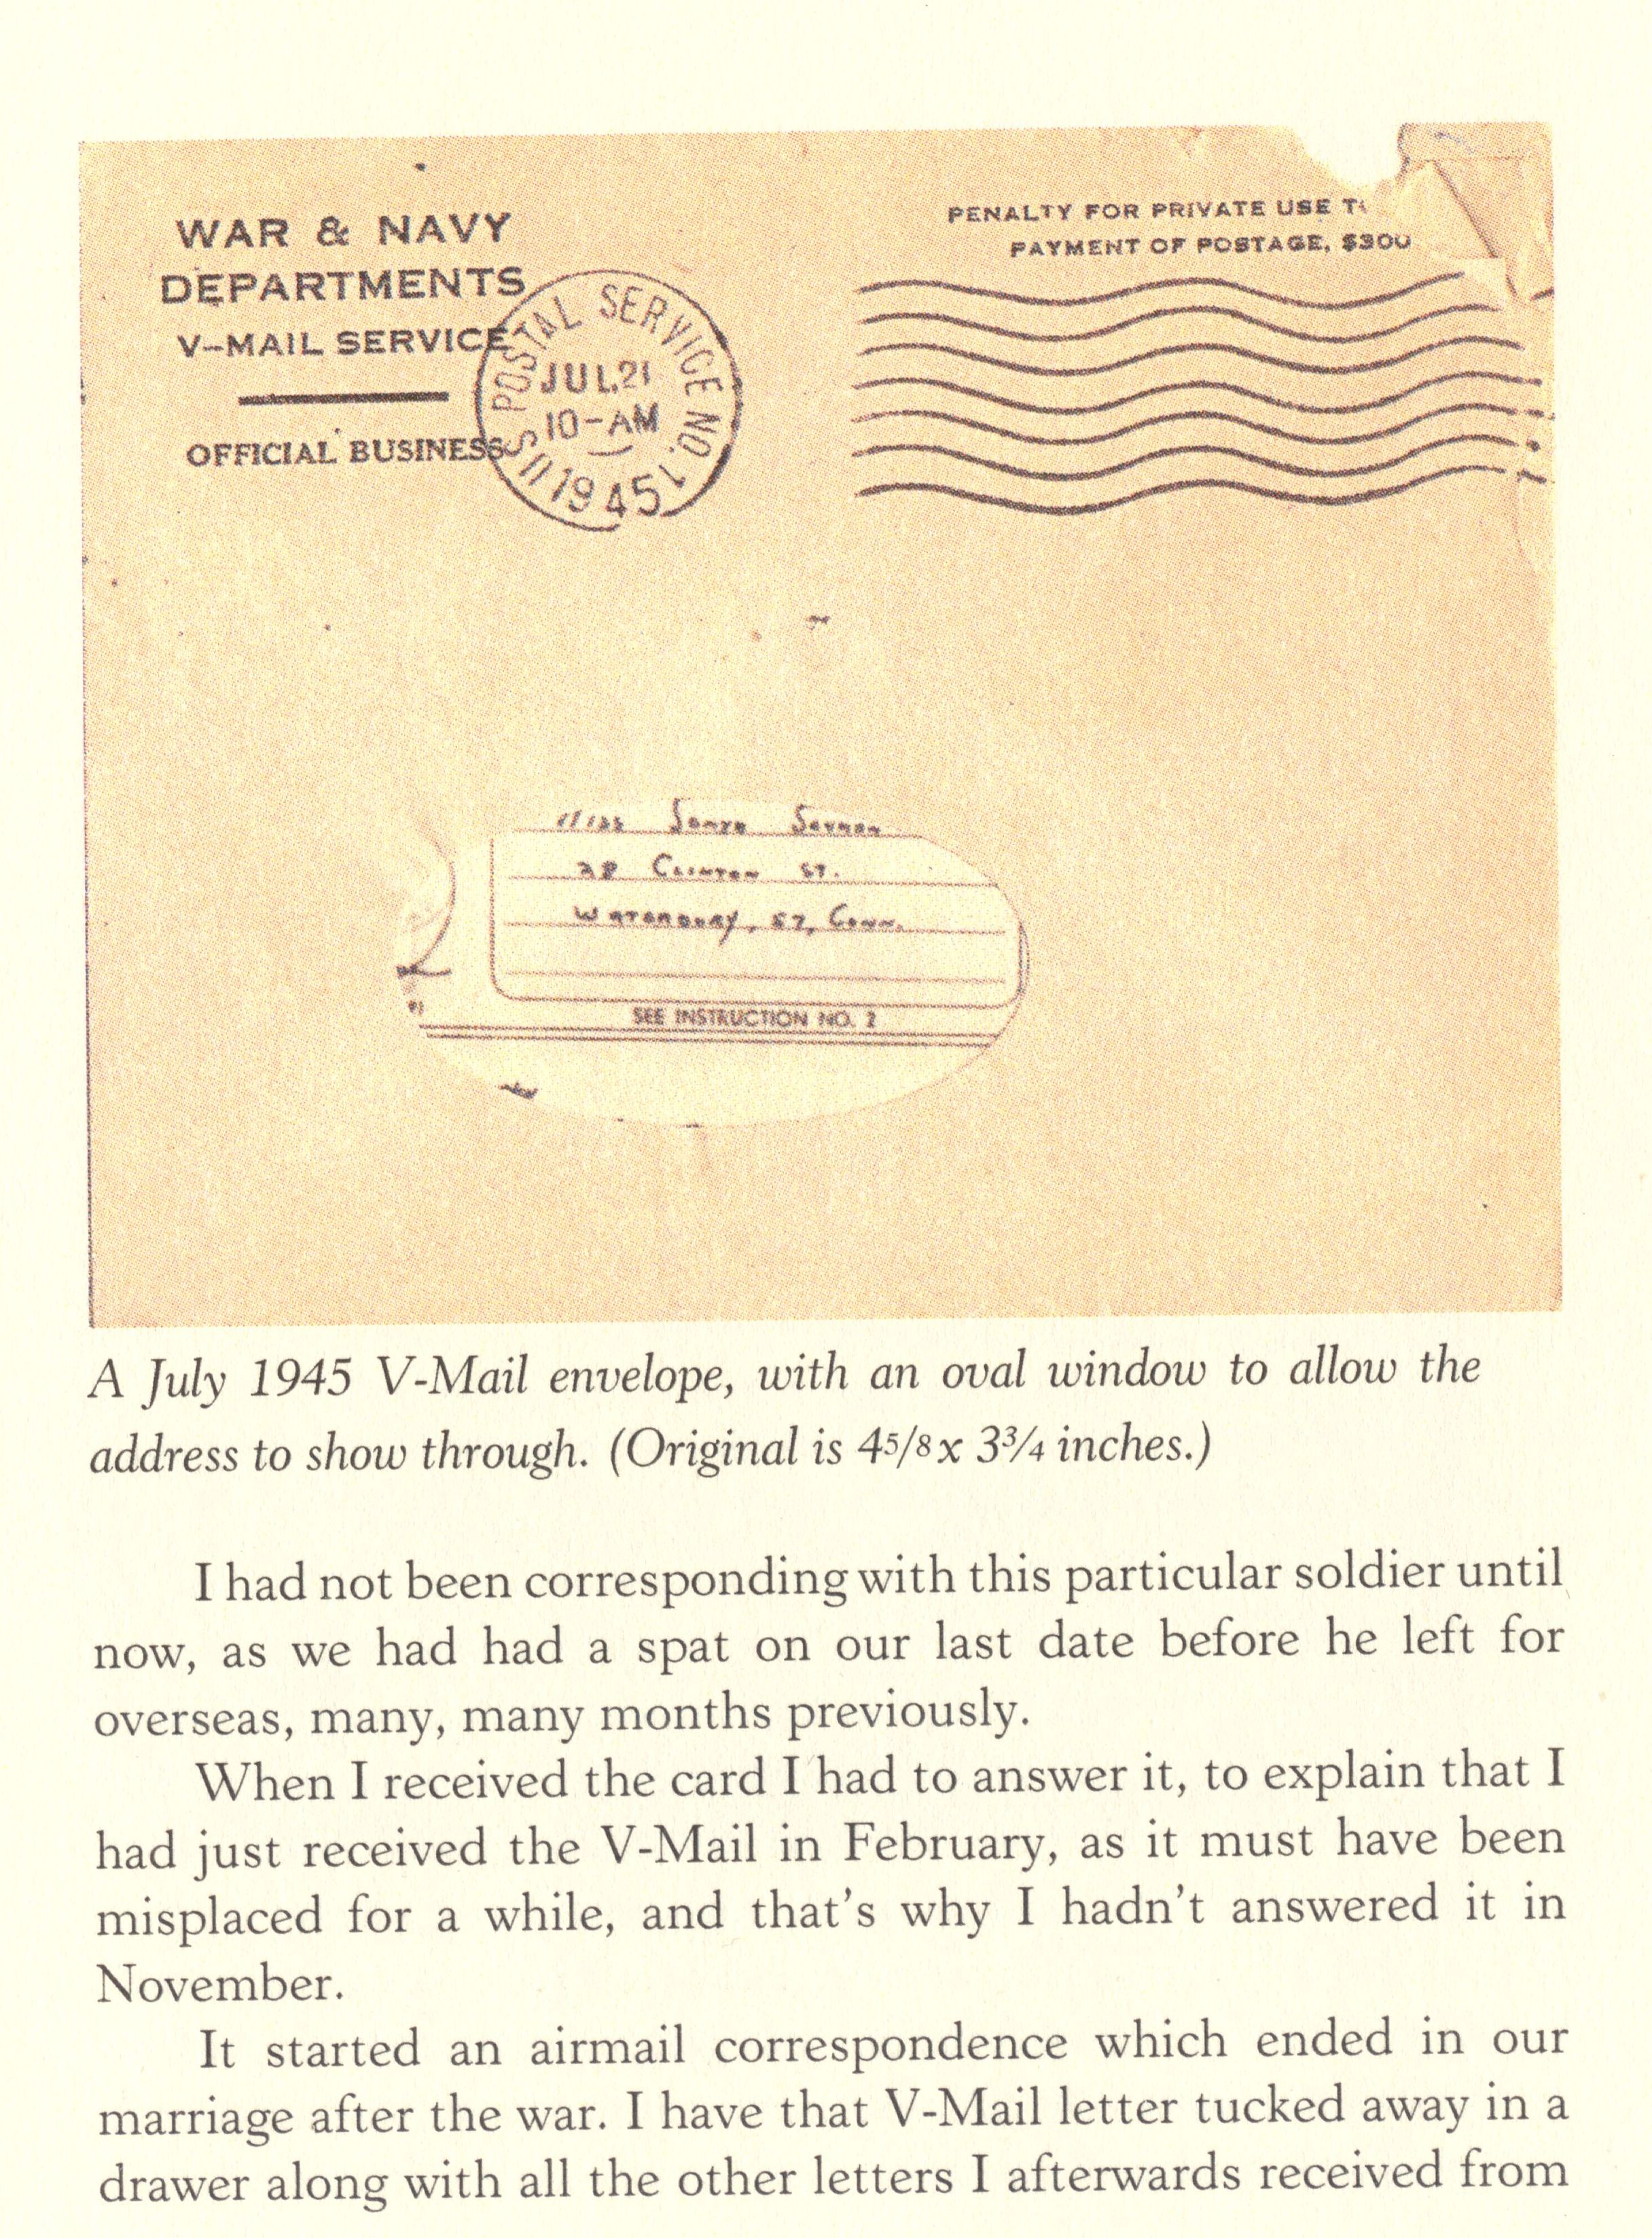 WAR & NAVY
DEPARTMENTS
V-MAIL SERVICE
OFFICIAL BUSINESS
U S POSTAL SERVICE NO. 1
JUL 21
10-AM
1945
PENALTY FOR PRIVATE USE
PAYMENT OF POSTAGE, $300
Miss
28 Clinton St.
Waterbury, 57, Conn.
SEE INSTRUCTION NO. 2
A July 1945 V-Mail envelope, with an oval window to allow the
address to show through. (Original is 4 5/8 x 3 3/4 inches.)
I had not been corresponding with this particular soldier until
now, as we had had a spat on our last date before he left for
overseas, many, many months previously.
When I received the card I had to answer it, to explain that I
had just received the V-Mail in February, as it must have been
misplaced for a while, and that's why I hadn't answered it in
November.
It started an airmail correspondence which ended in our
marriage after the war. I have that V-Mail letter tucked away in a
drawer along with all the other letters I afterwards received from